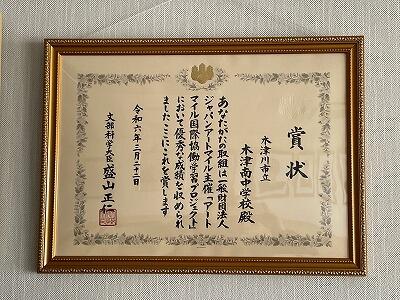 賞状
木津川市立
木津南中学校殿
あなたがたの取組は一般財団法人
ジャパンアートマイル主催「アート
マイル国際協働学習プロジェクト」
において優秀な成績を収められ
ましたここにこれを賞します
令和六年三月二十二日
文部科学大臣 盛山正仁